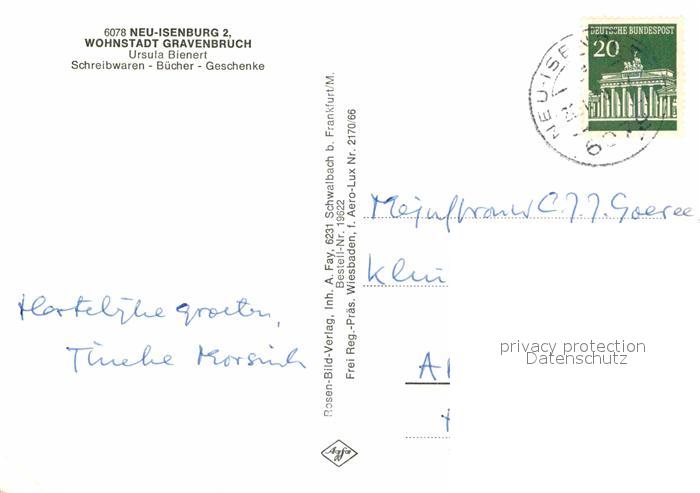 6078 NEU-ISENBURG 2,
WOHNSTADT GRAVENBRUCH
Ursula Bienert
Schreibwaren - Bücher - Geschenke
DEUTSCHE BUNDESPOST
20
NEU-ISE
Rosen-Bild-Verlag, Inh. A. Fay, 6231 Schwalbach b. Frankfurt/M.
Bestell-Nr. 19622
Frei Reg.-Präs. Wiesbaden, f. Aero-Lux Nr. 2170/66
Mejuffrouw C.J.J. Goeree
privacy protection
Datenschutz
Hartelijke groeten,
Tineke
Agfa